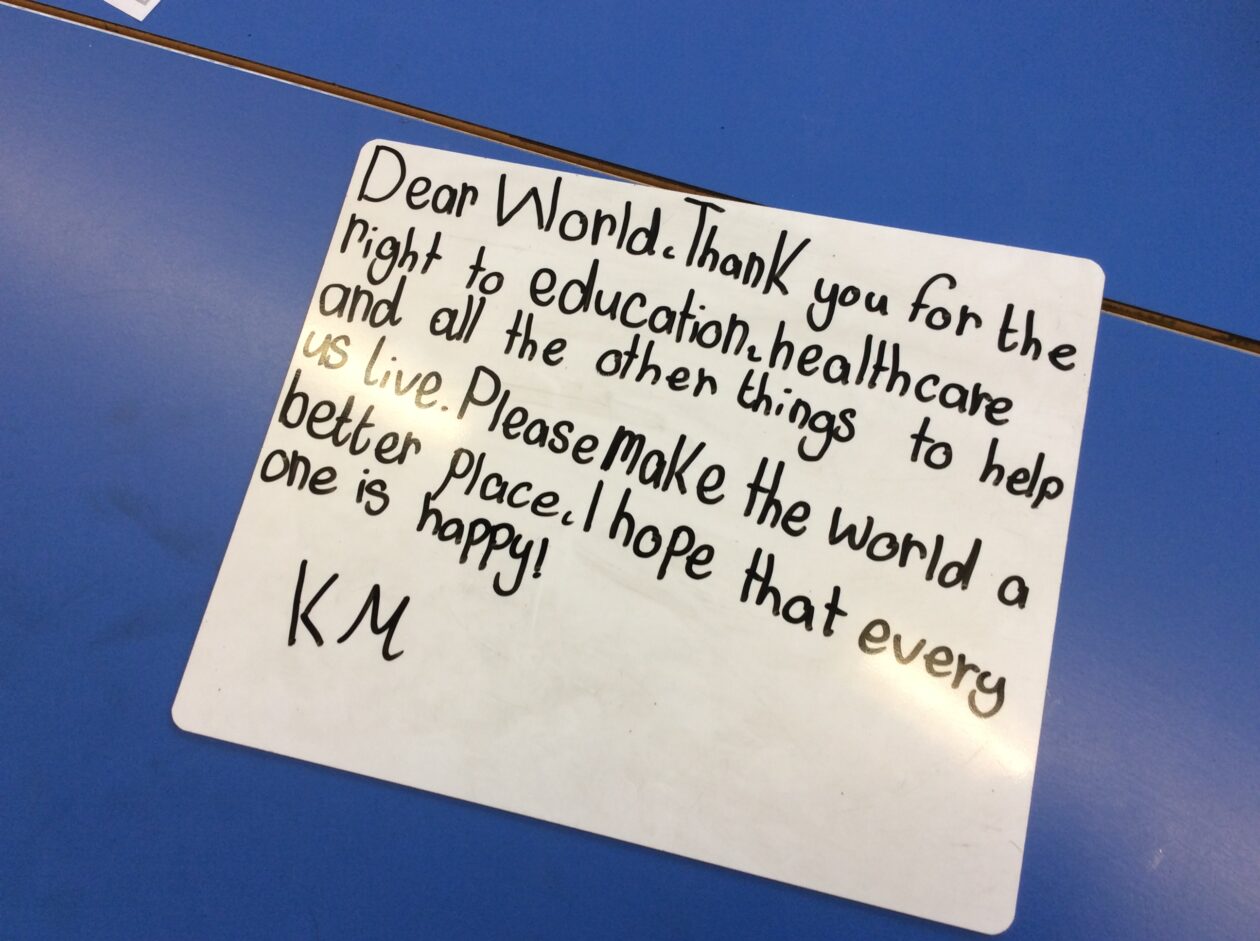 Dear World. Thank you for the
right to education, healthcare
and all the other things to help
us live. Please make the world a
better place. I hope that every
one is happy!
KM